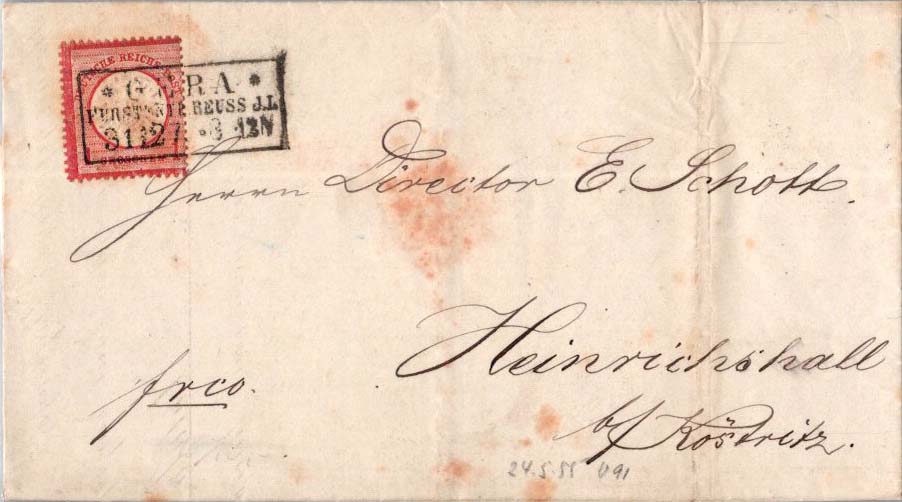 DEUTSCHE REICHS-POST
* GERA *
FÜRSTENTH REUSS J.L.
31 12 8-12N
GROSCHEN
Herrn Director E. Schott.
Heinrichshall
b/ Köstritz.
frco.
24.5.88 U91